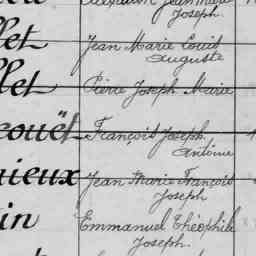 Joseph
llet Jean Marie Louis
Auguste
llet Pierre Joseph Marie
couët François Joseph
Antoine
rieux Jean Marie François
Joseph
in Emmanuel Théophile
Joseph.